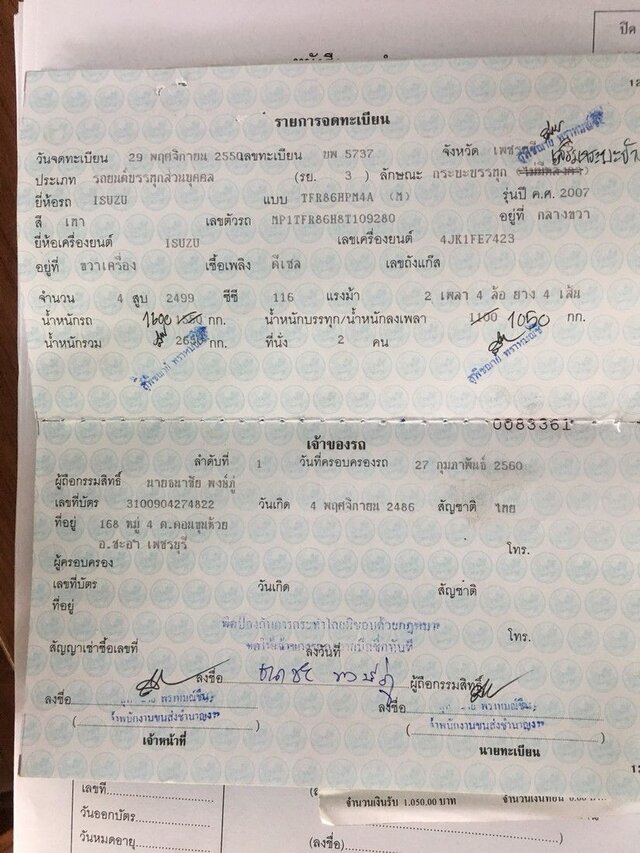 ปิด
12
รายการจดทะเบียน
วันจดทะเบียน 29 พฤศจิกายน 2550 เลขทะเบียน บพ 5737 จังหวัด เพชร
ประเภท รถยนต์บรรทุกส่วนบุคคล (รย. 3 ) ลักษณะ กระบะบรรทุก
ยี่ห้อรถ ISUZU แบบ TFR86HPM4A (M) รุ่นปี ค.ศ. 2007
สี เทา เลขตัวรถ MP1TFR86H8T109280 อยู่ที่ กลางขวา
ยี่ห้อเครื่องยนต์ ISUZU เลขเครื่องยนต์ 4JK1FE7423
อยู่ที่ ขวาเครื่อง เชื้อเพลิง ดีเซล เลขถังแก๊ส
จำนวน 4 สูบ 2499 ซีซี 116 แรงม้า 2 เพลา 4 ล้อ ยาง 4 เส้น
น้ำหนักรถ 1600 1550 กก. น้ำหนักบรรทุก/น้ำหนักลงเพลา 1100 1050 กก.
น้ำหนักรวม 2650 กก. ที่นั่ง 2 คน
0083361
เจ้าของรถ
ลำดับที่ 1 วันที่ครอบครองรถ 27 กุมภาพันธ์ 2560
ผู้ถือกรรมสิทธิ์ นายธนาชัย พงษ์ภู่
เลขที่บัตร 3100904274822 วันเกิด 4 พฤศจิกายน 2486 สัญชาติ ไทย
ที่อยู่ 168 หมู่ 4 ต.ดอนขุนห้วย
อ.ชะอำ เพชรบุรี โทร.
ผู้ครอบครอง
เลขที่บัตร วันเกิด สัญชาติ
ที่อยู่
โทร.
สัญญาเช่าซื้อเลขที่ ลงวันที่
ลงชื่อ ผู้ถือกรรมสิทธิ์
ลงชื่อ ลงชื่อ
เจ้าพนักงานขนส่งชำนาญงาน เจ้าพนักงานขนส่งชำนาญงาน
เจ้าหน้าที่ นายทะเบียน
จำนวนเงินรับ 1,050.00 บาท จำนวนเงินทอน 0.00 บาท
เลขที่
วันออกบัตร
วันหมดอายุ (ลงชื่อ)